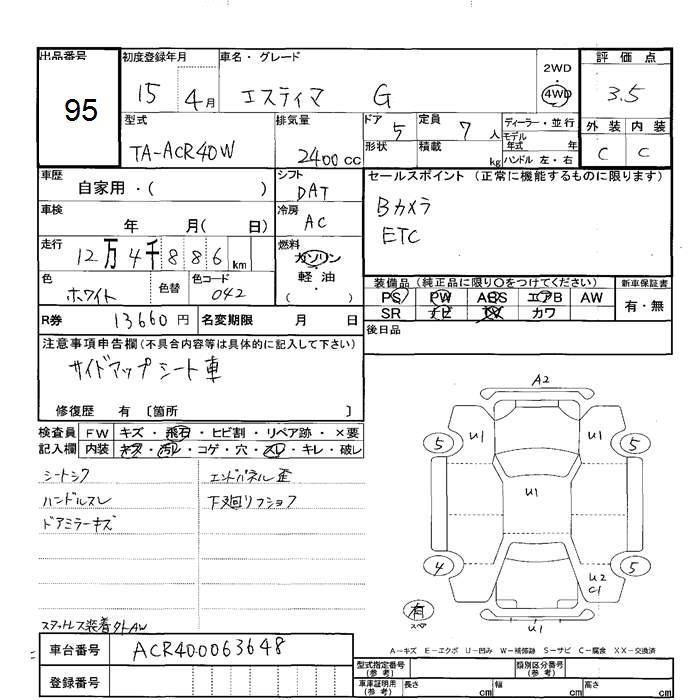 出品番号 初度登録年月 車名・グレード 2WD 評価点
95 15 4月 エスティマ G 4WD 3.5
型式 排気量 ドア 5 定員 7人 ディーラー・並行 外装 内装
TA-ACR40W 2400cc 形状 積載 kg モデル年式 年 C C
ハンドル 左・右
車歴 自家用・( ) シフト DAT セールスポイント (正常に機能するものに限ります)
車検 年 月( 日) 冷房 AC Bカメラ
ETC
走行 12万4千886km 燃料 ガソリン
軽油
( )
色 ホワイト 色替 色コード 042
装備品 (純正品に限り○をつけてください) 新車保証書
PS PW ABS エアB AW 有・無
SR ナビ TV カワ
R券 13660円 名変期限 月 日 後日品
注意事項申告欄 (不具合内容等は具体的に記入して下さい)
サイドアップシート車
修復歴 有 〔箇所 〕
検査員 FW キズ・飛石・ヒビ割・リペア跡・×要
記入欄 内装 キズ・汚レ・コゲ・穴・スレ・キレ・破レ
シートシワ エンドパネル歪
ハンドルスレ 下廻リフショフ
ドアミラーキズ
スタットレス装着外AW
A2
5 U1 U1 5
U1
4 U2 5
C1
有
スペ
U1
A-キズ E-エクボ U-凹み W-補修跡 S-サビ C-腐食 XX-交換済
車台番号 ACR400063648
登録番号
型式指定番号 (参考) 類別区分番号 (参考)
車庫証明用 (参考) 長さ cm 幅 cm 高さ cm